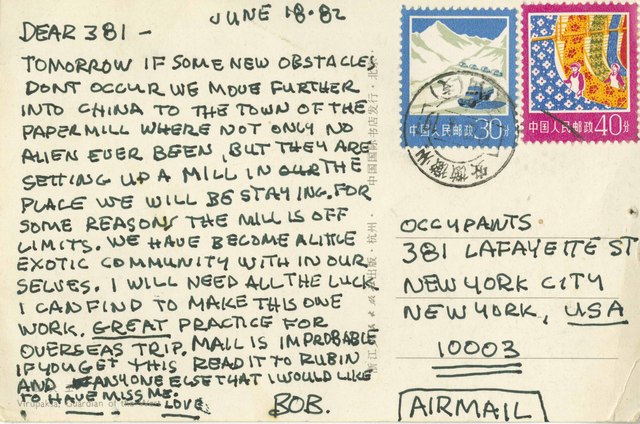 JUNE 18.82
DEAR 381 -
TOMORROW IF SOME NEW OBSTACLES
DONT OCCUR WE MOVE FURTHER
INTO CHINA TO THE TOWN OF THE
PAPERMILL WHERE NOT ONLY NO
ALIEN EVER BEEN, BUT THEY ARE
SETTING UP A MILL IN OUR THE
PLACE WE WILL BE STAYING. FOR
SOME REASONS THE MILL IS OFF
LIMITS. WE HAVE BECOME A LITTLE
EXOTIC COMMUNITY WITH IN OUR
SELVES. I WILL NEED ALL THE LUCK
I CAN FIND TO MAKE THIS ONE
WORK. GREAT PRACTICE FOR
OVERSEAS TRIP. MAIL IS IMPROBABLE
IF YOU GET THIS READ IT TO RUBIN
AND ANYONE ELSE THAT I WOULD LIKE
TO HAVE MISS ME.
LOVE BOB.
Virupaksa, Guardian of the West
中国国际书店发行·北京
中国人民邮政 30分
中国人民邮政 40分
安徽
OCCUPANTS
381 LAFAYETTE ST
NEW YORK CITY
NEW YORK, USA
10003
AIRMAIL